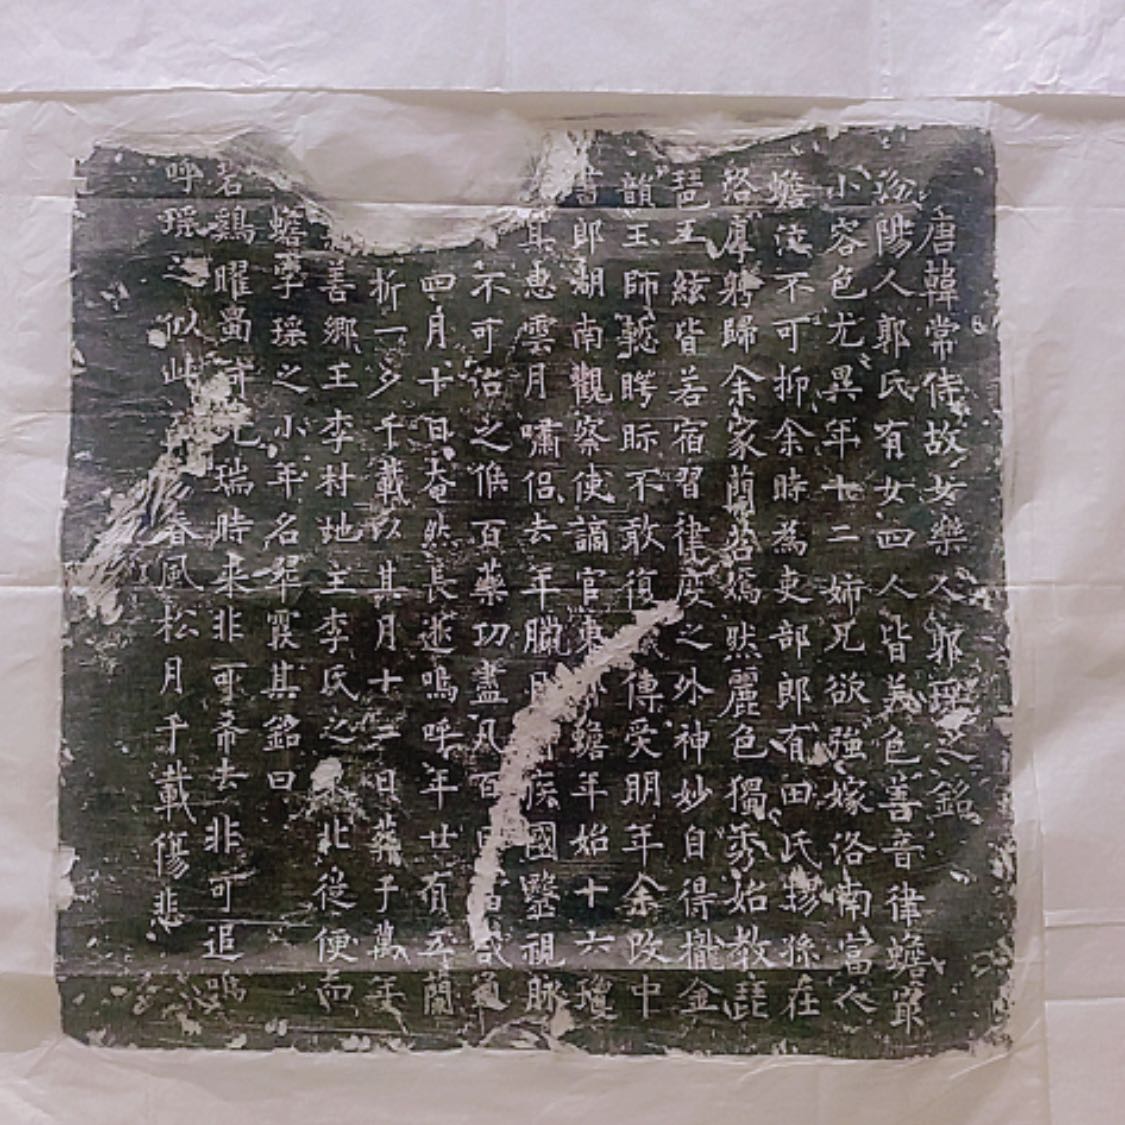 唐韓常侍故女樂人郭瑤之銘
汾陽人郭氏有女四人皆美色善音律蟾寂
小容色尤異年十二姉兄欲強嫁洛南富人
蟾泣不可抑余時為吏部郎有田氏甥孫在
洛虔躬歸余家蘭若嫣然麗色獨秀始教琵
琶玉絃皆若宿習律度之外神妙自得攏金
韻玉師聽腭眎不敢復傳受明年余改中
書郎湖南觀察使謫官東 蟾年始十六瓊
其惠雲月嘯侶去年臘月 疾國毉視脉
不可治之惟百藥功盡凡百日
四月十日奄然長逝嗚呼年廿有五蘭
折一夕千載以其月十二日葬于萬年
善鄉王李村地主李氏之 北從便而
蟾字瑤之小年名翠霞其銘曰
若鷄曜蜀 瑞時来非可希去非可追嗚
呼瑤之似此 春風松月千載傷悲